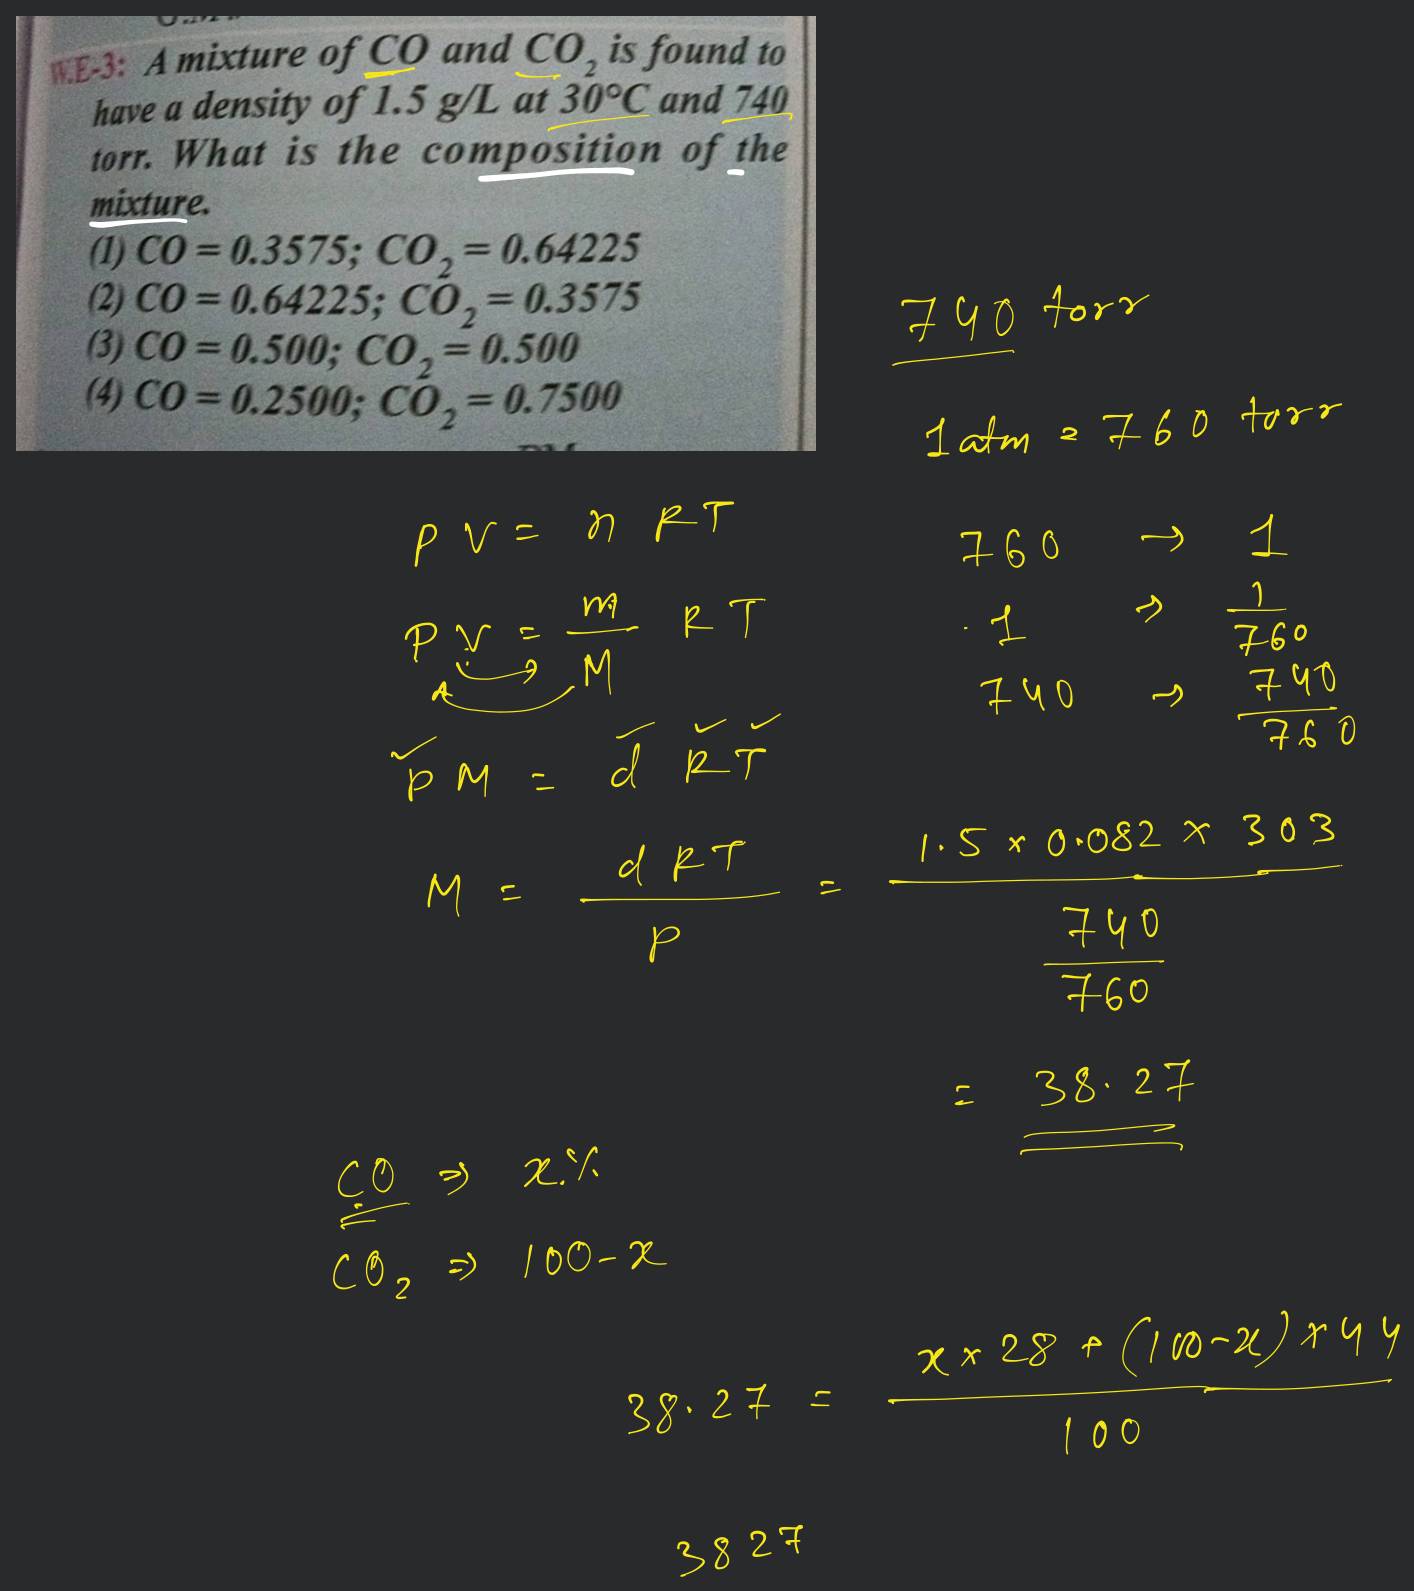 W.E-3: A mixture of CO and CO₂ is found to
have a density of 1.5 g/L at 30°C and 740
torr. What is the composition of the
mixture.
(1) CO = 0.3575; CO₂ = 0.64225
(2) CO = 0.64225; CO₂ = 0.3575
(3) CO = 0.500; CO₂ = 0.500
(4) CO = 0.2500; CO₂ = 0.7500
740 torr
1 atm = 760 torr
PV = n RT
760 → 1
PV = m/M RT
1 → 1/760
740 → 740/760
PM = d RT
M = dRT/P = 1.5 x 0.082 x 303 / 740/760
= 38.27
CO ⇒ x.%
CO₂ ⇒ 100-x
38.27 = x x 28 + (100-x) x 44 / 100
3827